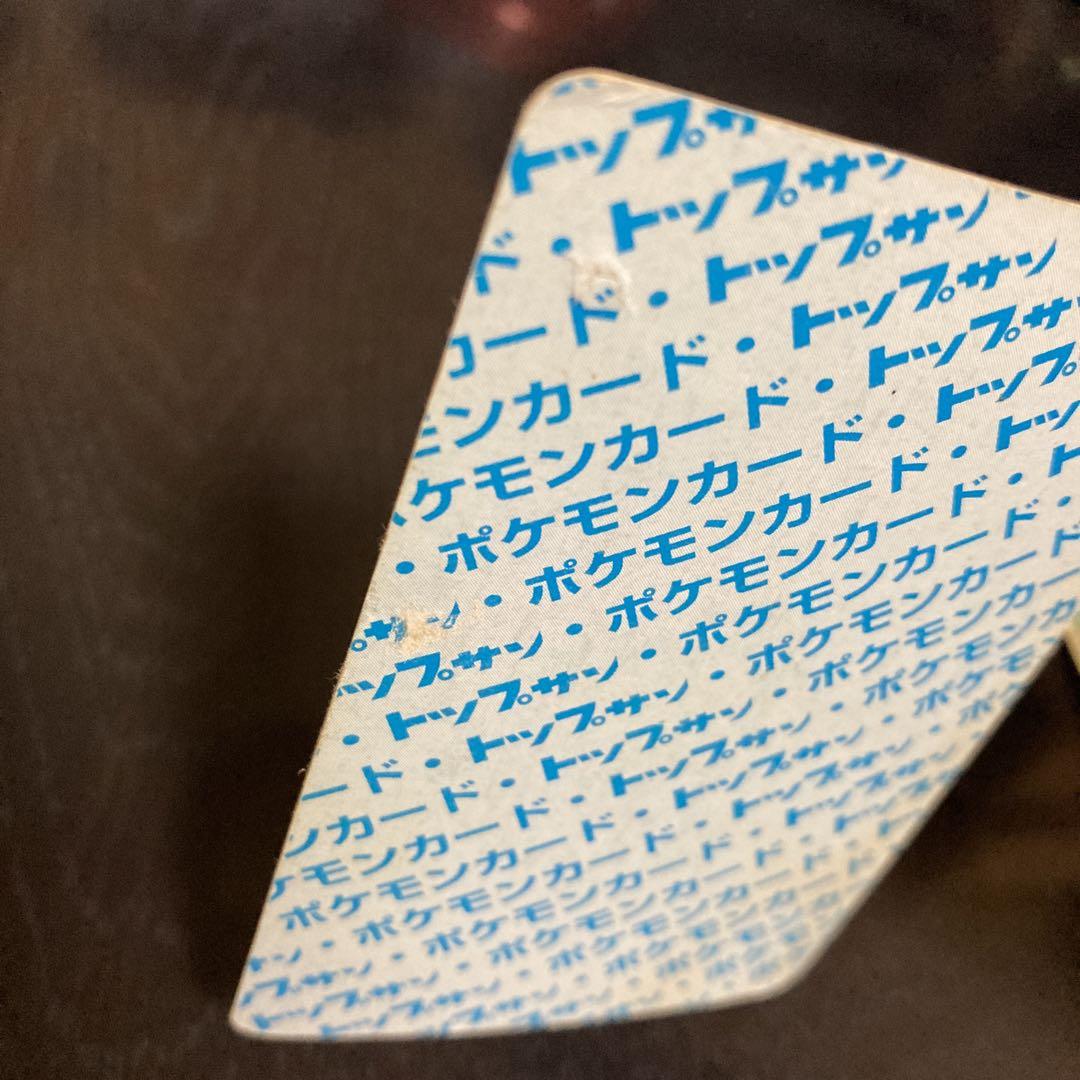 トップサ
ド・トップサン
カード・トップサン
モンカード・トップサン
ポケモンカード・トップサ
・ポケモンカード・トップ
サン・ポケモンカード・トッ
ップサン・ポケモンカード・ト
・トップサン・ポケモンカード・
ード・トップサン・ポケモンカード
ンカード・トップサン・ポケモンカー
ケモンカード・トップサン・ポケモンカ
ポケモンカード・トップサン・ポケモ
ン・ポケモンカード・トップサン・ポ
トップサン・ポケモンカード・トップサン